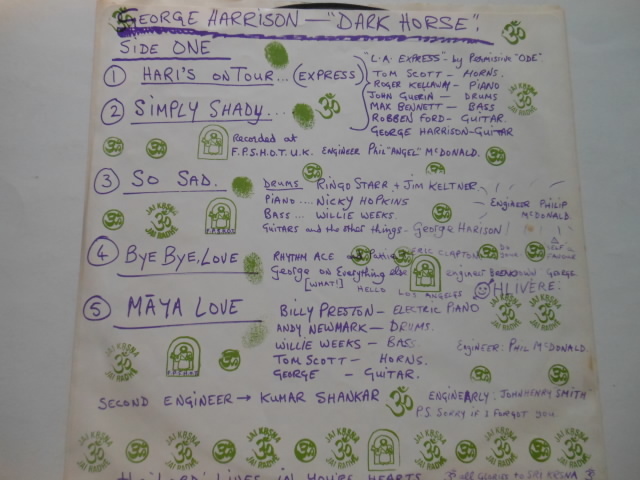 GEORGE HARRISON — "DARK HORSE".
SIDE ONE
① HARI'S ON TOUR... (EXPRESS)
"L.A. EXPRESS" - by Permission "ODE"
TOM SCOTT — HORNS.
ROGER KELLAWAY - PIANO
JOHN GUERIN — DRUMS
MAX BENNETT — BASS
ROBBEN FORD - GUITAR.
GEORGE HARRISON - GUITAR
② SIMPLY SHADY...
Recorded at
F.P.S.H.O.T. U.K. ENGINEER PHIL "ANGEL" McDONALD.
③ SO SAD.
DRUMS RINGO STARR + JIM KELTNER
PIANO.... NICKY HOPKINS
BASS... WILLIE WEEKS.
GUITARS and the other things - GEORGE HARISON!
ENGINEER PHILIP
McDONALD
④ BYE BYE, LOVE
RHYTHM ACE and Pattie ERIC CLAPTON
George on Everything else
[WHAT!] HELLO LOS ANGELES
engineer George.
HI VERE:
⑤ MĀYA LOVE
BILLY PRESTON — ELECTRIC PIANO
ANDY NEWMARK — DRUMS.
WILLIE WEEKS — BASS
TOM SCOTT — HORNS.
GEORGE — GUITAR.
ENGINEER: PHIL McDONALD
SECOND ENGINEER → KUMAR SHANKAR
ENGINEARLY: JOHNHENRY SMITH
P.S. SORRY if I FORGOT YOU
JAI KRSNA ॐ JAI RADHE
F.P.S.H.O.T.
LIVES IN YOUR HEARTS
ॐ all Glories to SRI KRSNA ॐ